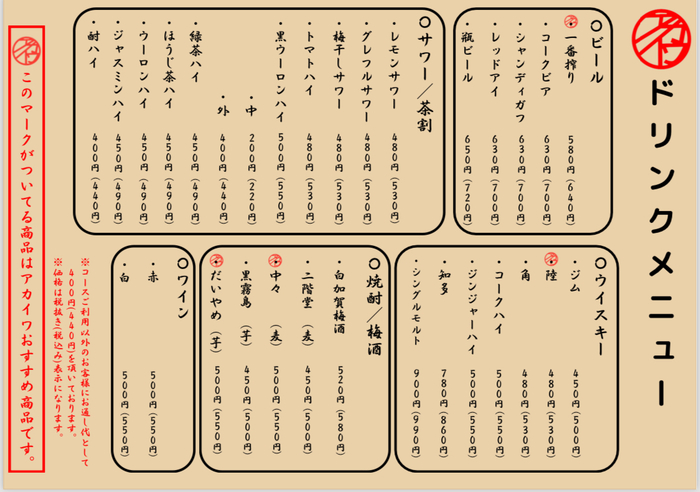 ドリンクメニュー
○ビール
・一番搾り 580円(640円)
・コークビア 630円(700円)
・シャンディガフ 630円(700円)
・レッドアイ 630円(700円)
・瓶ビール 650円(720円)
○サワー／茶割
・レモンサワー 480円(530円)
・グレフルサワー 480円(530円)
・梅干しサワー 480円(530円)
・トマトハイ 480円(530円)
・黒ウーロンハイ 500円(550円)
・中 200円(220円)
・外 400円(440円)
・緑茶ハイ 450円(490円)
・ほうじ茶ハイ 450円(490円)
・ウーロンハイ 450円(490円)
・ジャスミンハイ 450円(490円)
・酎ハイ 400円(440円)
○ウイスキー
・ジム 450円(500円)
・陸 480円(530円)
・角 480円(530円)
・コークハイ 500円(550円)
・ジンジャーハイ 500円(550円)
・知多 780円(860円)
・シングルモルト 900円(990円)
○焼酎／梅酒
・白加賀梅酒 520円(580円)
・二階堂(麦) 450円(500円)
・中々(麦) 500円(550円)
・黒霧島(芋) 450円(500円)
・だいやめ(芋) 500円(550円)
○ワイン
・赤 500円(550円)
・白 500円(550円)
※コースご利用以外のお客様にお通し代として
400円(440円)を頂いております。
※価格は税抜き(税込み)表示になります。
このマークがついてる商品はアカイワおすすめ商品です。